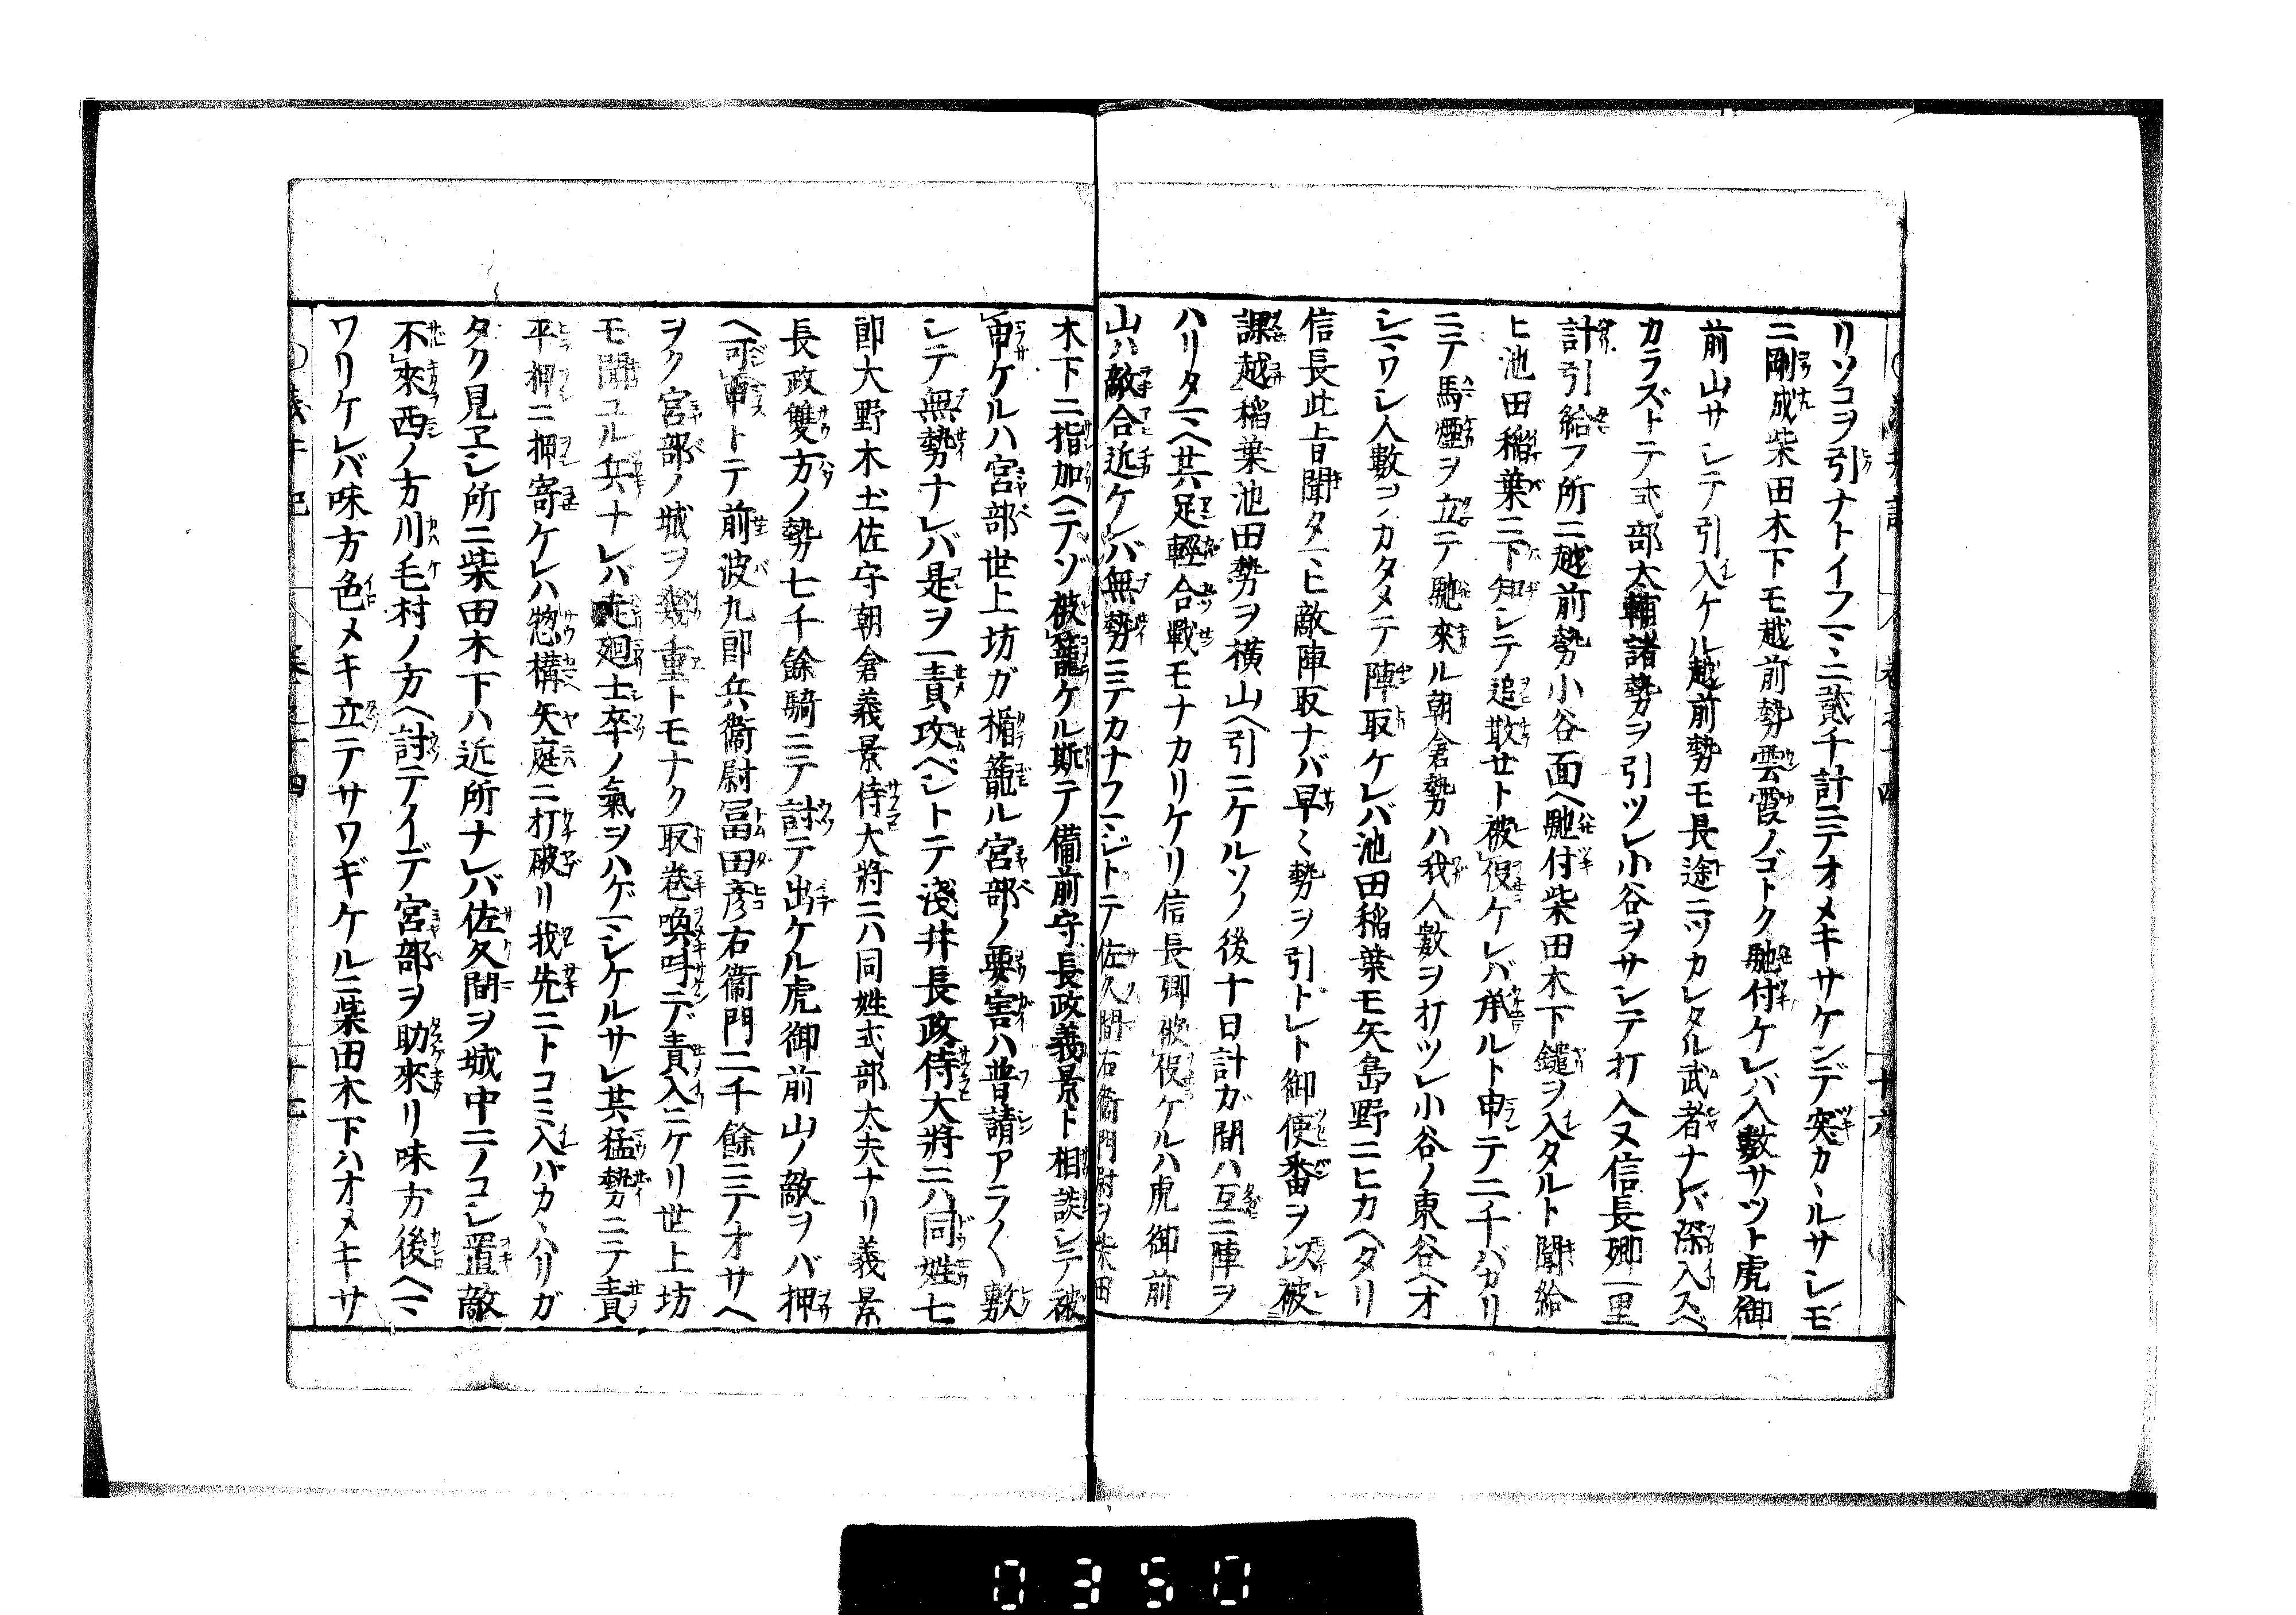 リソコヲ引ナトイフマヽニ貳千計ニテオメキサケンデ突カヽルサレモ
ニ剛成柴田木下モ越前勢雲霞ノゴトク馳付ケレバ人數サツト虎御
前山サシテ引入ケル越前勢モ長途ニツカレタル武者ナレバ深入スベ
カラズトテ式部太輔諸勢ヲ引ツレ小谷ヲサシテ打入又信長卿一里
計引給フ所ニ越前勢小谷面ヘ馳付柴田木下鑓ヲ入タルト聞給
ヒ池田稲葉ニ下知シテ追散せト被仰ケレバ承ルト申テ二千バカリ
ニテ馬煙ヲ立テ馳來ル朝倉勢ハ我人數ヲ打ツレ小谷ノ東谷ヘオ
シマワシ人數ヲカタメテ陣取ケレバ池田稲葉モ矢島野ニヒカヘタリ
信長此旨聞タマヒ敵陣取ナバ早ミ勢ヲ引トレト御使番ヲ以被
課越稲葉池田勢ヲ横山ヘ引ニケルソノ後十日計ガ間ハ互ニ陣ヲ
ハリタマヘ共足輕合戰モナカリケリ信長卿被仰ケルハ虎御前
山ハ敵合近ケレバ無勢ニテカナフマジトテ佐久間右衞門尉ヲ柴田
木下ニ指加ヘテゾ被籠ケル斯テ備前守長政義景ト相談シテ被
申ケルハ宮部世上坊ガ楯籠ル宮部ノ要害ハ普請アラ〳〵敷
シテ無勢ナレバ是ヲ一責攻ベシトテ淺井長政侍大將ニハ同姓七
郎大野木土佐守朝倉義景侍大將ニハ同姓式部太夫ナリ義景
長政雙方ノ勢七千餘騎ニテ討テ出ケル虎御前山ノ敵ヲバ押
ヘ可申トテ前波九郎兵衞尉冨田彦右衞門二千餘ニテオサヘ
ヲク宮部ノ城ヲ幾重トモナク取巻喚叫デ責入ニケリ世上坊
モ聞ユル兵ナレハ走廻士卒ノ氣ヲハゲマシケルサレ共猛勢ニテ責
平押ニ押寄ケレハ惣構矢庭ニ打破リ我先ニトコミ入バカヽハリガ
タク見ヱシ所ニ柴田木下ハ近所ナレバ佐久間ヲ城中ニノコシ置敵
不來西ノ方川毛村ノ方ヘ討テイデ宮部ヲ助來リ味方後ヘマ
ワリケレバ味方色メキ立テサワギケルニ柴田木下ハオメキサ
0350